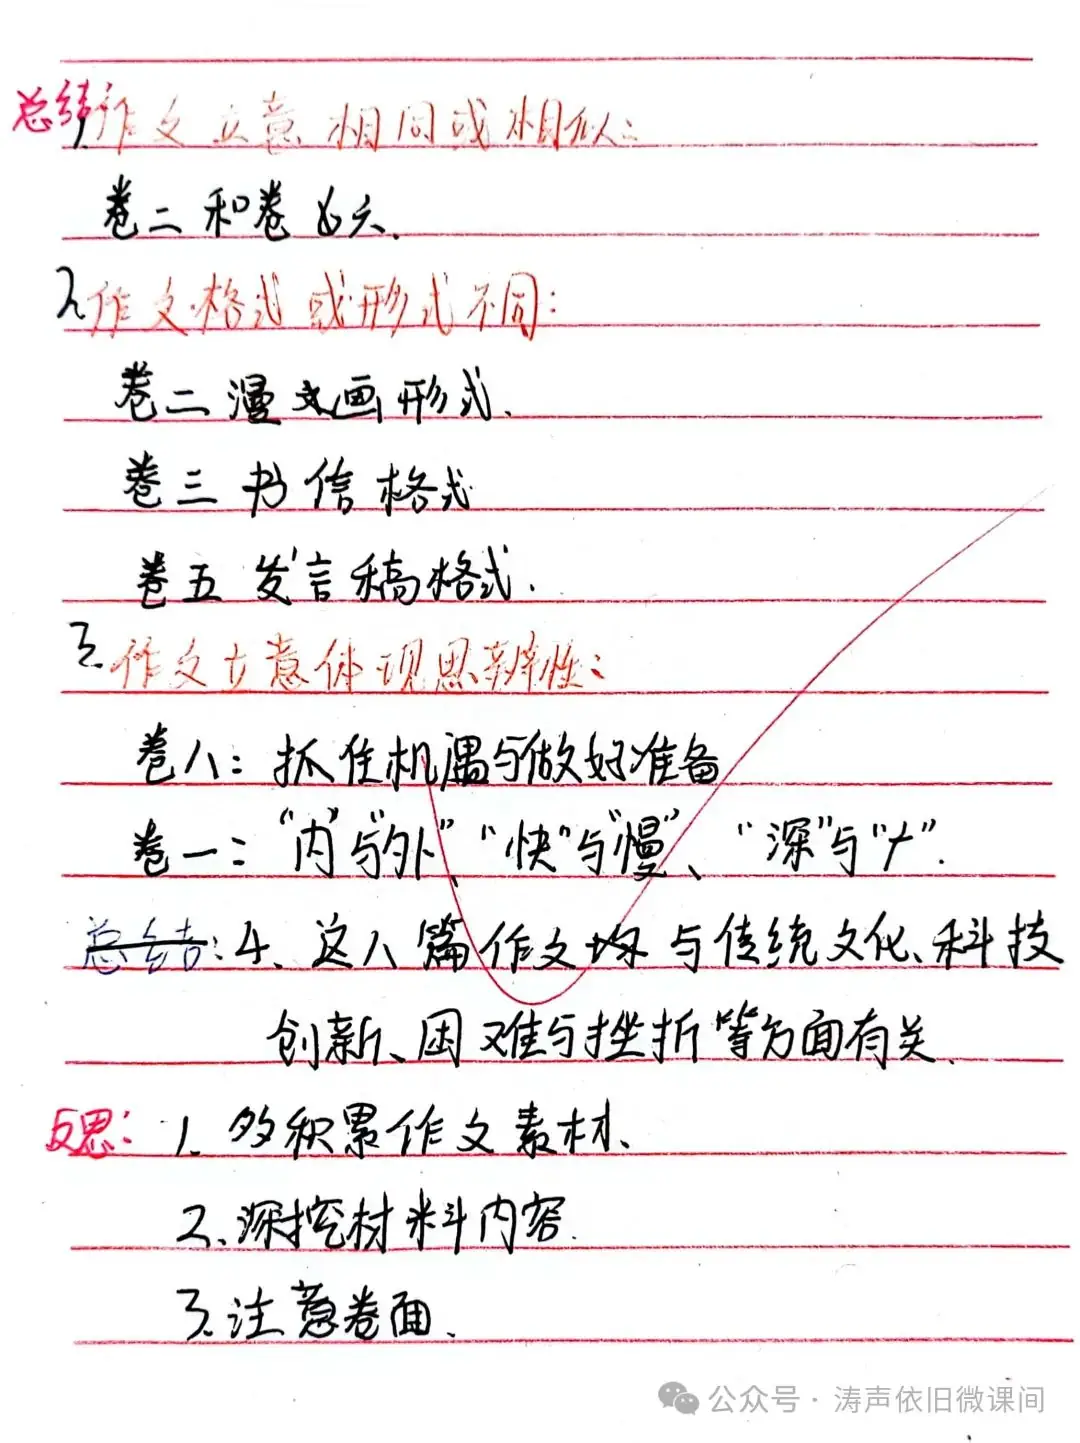 总结1.作文立意相同或相似：
卷二和卷六.
2.作文格式或形式不同：
卷二漫画形式.
卷三书信格式
卷五发言稿格式.
3.作文立意体现思辨性：
卷八：抓住机遇与做好准备
卷一：“内”与“外”、“快”与“慢”、“深”与“广”.
总结：4、这八篇作文均与传统文化、科技
创新、困难与挫折等方面有关.
反思：1.多积累作文素材、
2、深挖材料内容.
3.注意卷面.
公众号·涛声依旧微课间